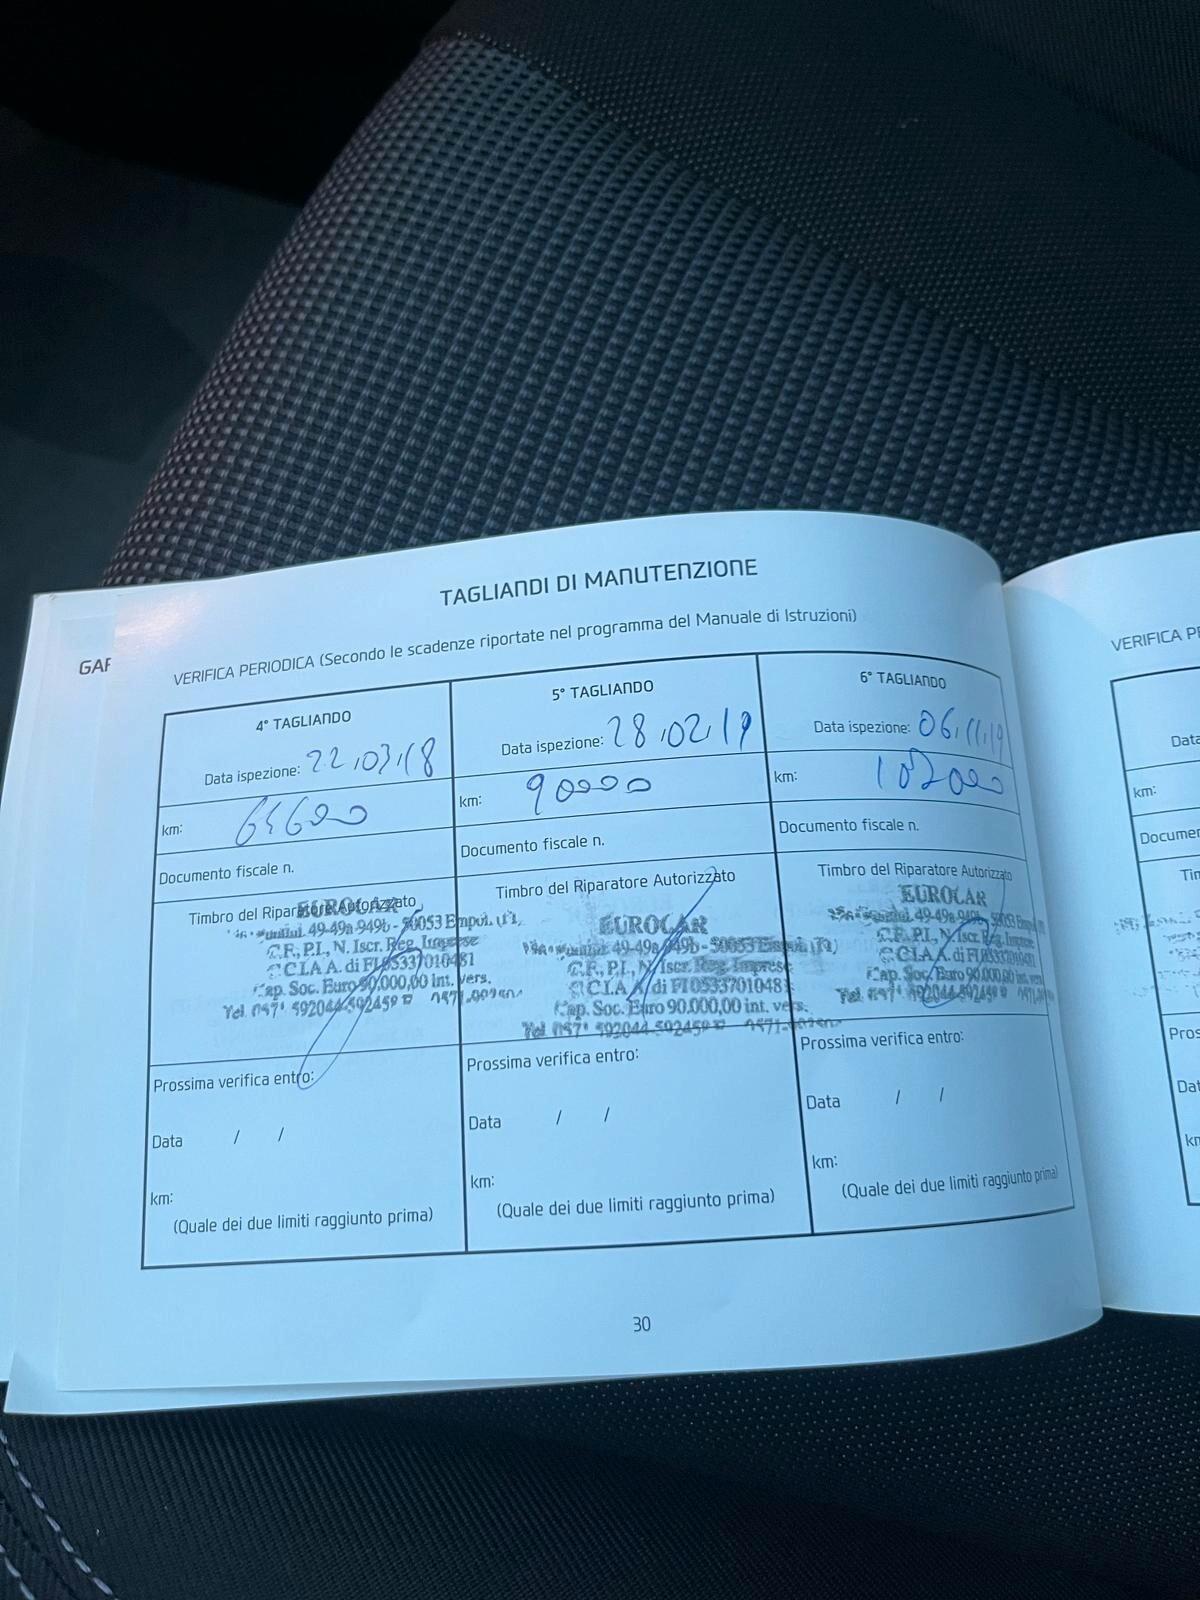 TAGLIANDI DI MANUTENZIONE
GAR
VERIFICA PERIODICA (Secondo le scadenze riportate nel programma del Manuale di Istruzioni)
4° TAGLIANDO
Data ispezione: 22.03.18
km:
Documento fiscale n.
Timbro del Riparatore Autorizzato
EUROCAR
49-49a-949b - 50053 Empoli (FI)
C.F., P.I., N. Iscr. Reg. Imprese
C.C.I.A.A. di FI 05337010481
Cap. Soc. Euro 90.000,00 int. vers.
Tel. 0571 592044-592459
Prossima verifica entro:
Data / /
km:
(Quale dei due limiti raggiunto prima)
5° TAGLIANDO
Data ispezione: 28.02.19
km: 90000
Documento fiscale n.
Timbro del Riparatore Autorizzato
EUROCAR
49-49a-949b - 50053 Empoli (FI)
C.F., P.I., N. Iscr. Reg. Imprese
C.C.I.A.A. di FI 0533701048
Cap. Soc. Euro 90.000,00 int. vers.
Tel. 0571 592044-592459
Prossima verifica entro:
Data / /
km:
(Quale dei due limiti raggiunto prima)
6° TAGLIANDO
Data ispezione: 06.11.19
km: 102000
Documento fiscale n.
Timbro del Riparatore Autorizzato
EUROCAR
49-49a-949b - 50053 Empoli
C.F., P.I., N. Iscr. Reg. Imprese
C.C.I.A.A. di FI 05337010481
Cap. Soc. Euro 90.000,00 int. vers.
Tel. 0571 592044-592459
Prossima verifica entro:
Data / /
km:
(Quale dei due limiti raggiunto prima)
30
VERIFICA PE
Data
km:
Documen
Tim
Pros
Dat
km